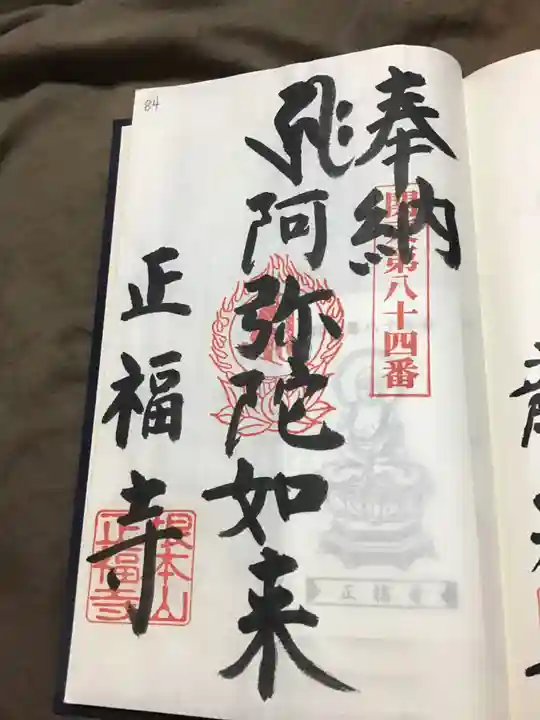 84
奉納
関東第八十四番
阿弥陀如来
正福寺
根本山
正福寺
正福寺